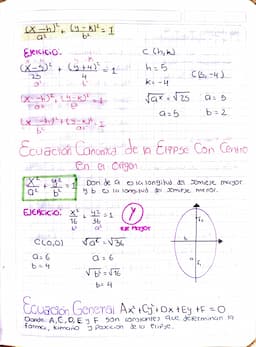 (x-h)²/a² + (y-k)²/b² = 1
EJERCICIO: C(h,k)
(x-5)²/25 + (y+4)²/4 = 1
h=5
k=-4
C(5,-4)
(x-h)²/a² + (y-k)²/b² = 1
√a² = √25 a=5
a=5 b=2
(x-h)²/b² + (y-k)²/a² = 1
Ecuación Canonica de la Elipse Con Centro
En el Origen
x²/a² + y²/b² = 1 Don de a es la longitud del semieje mayor
y b es la longitud del semieje menor.
EJERCICIO: x²/16 + y²/36 = 1
b² a²
Y
eje mayor
C(0,0) √a² = √36
a=6 a=6
b=4 √b² = √16
b=4
Ecuación General Ax²+Cy²+Dx+Ey+F=0
Donde A, C, D, E y F son constantes que determinan la
forma, tamaño y posición de la elipse.